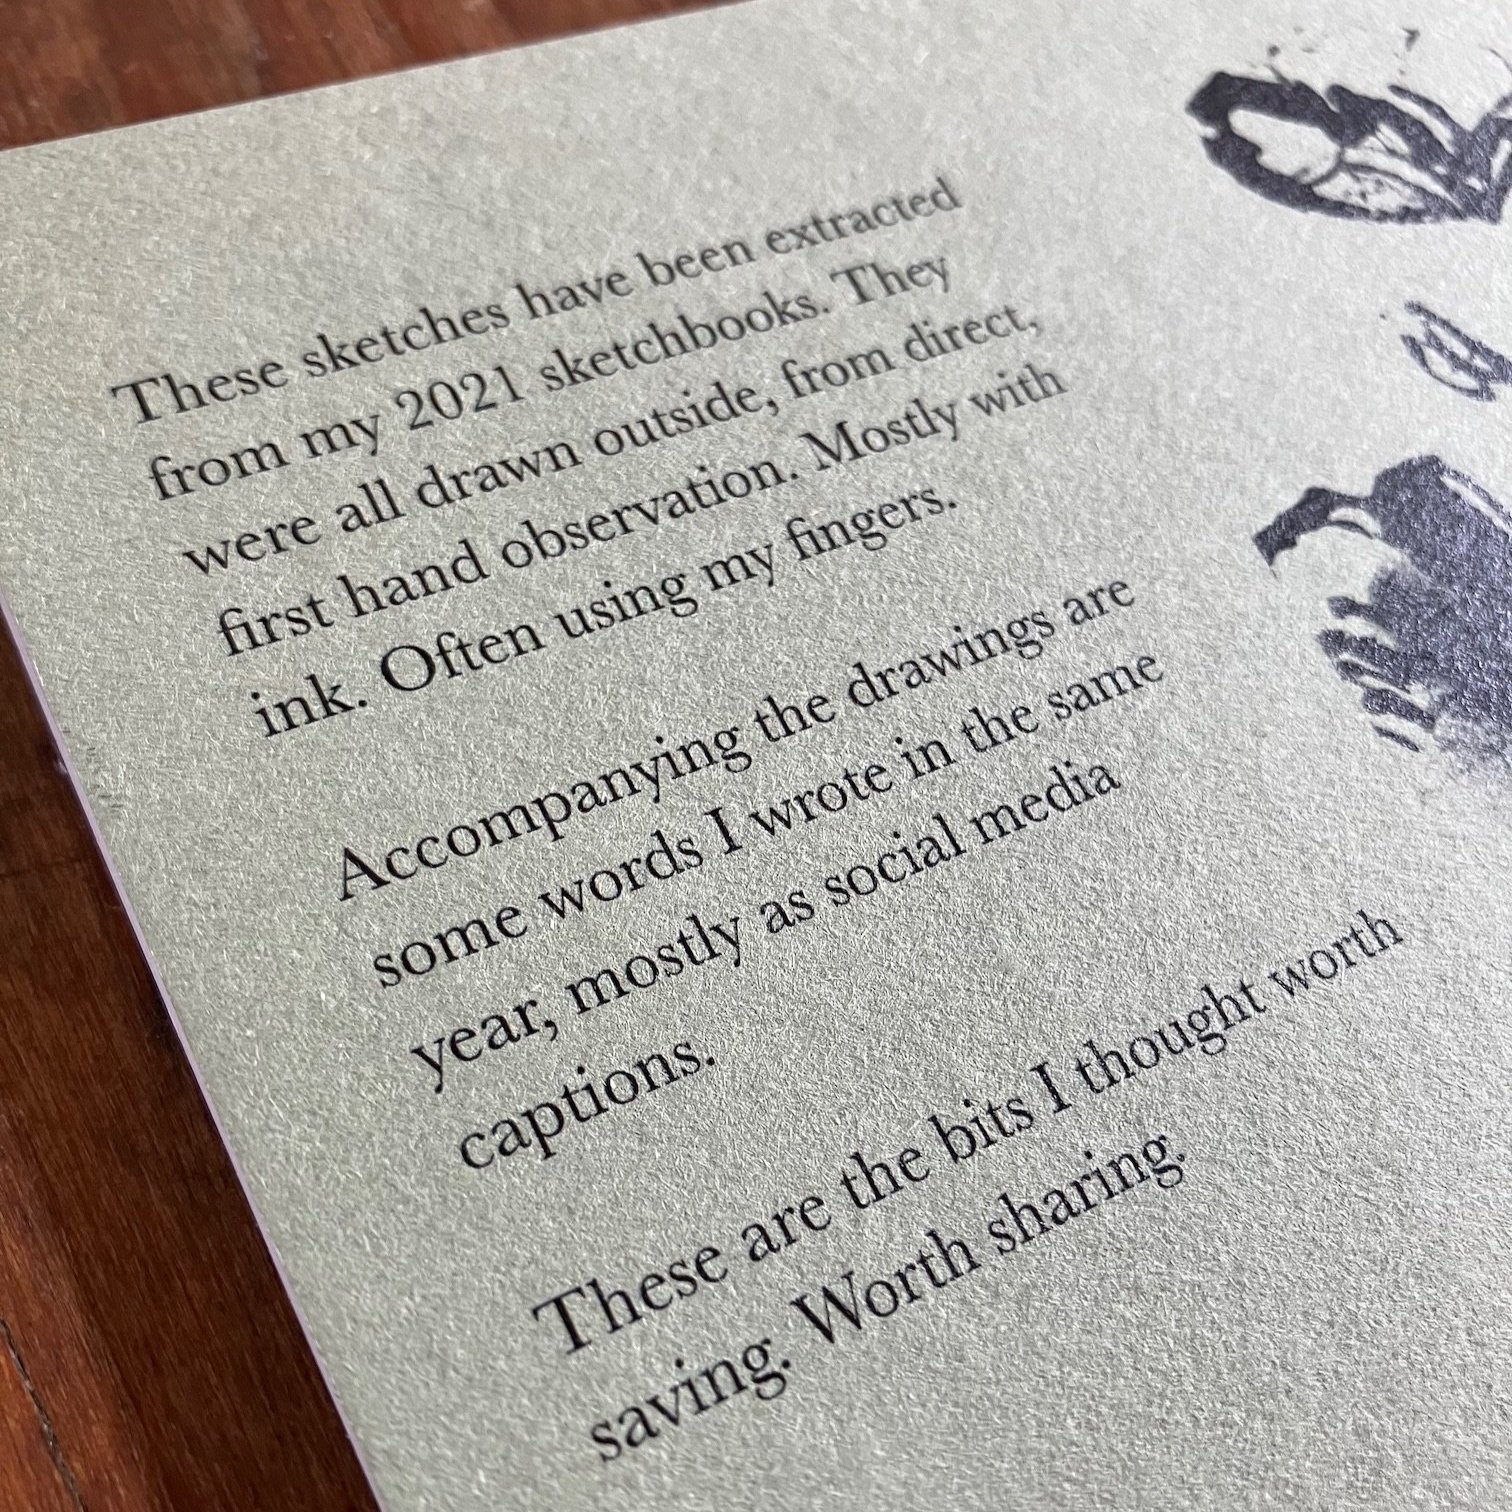 These sketches have been extracted
from my 2021 sketchbooks. They
were all drawn outside, from direct,
first hand observation. Mostly with
ink. Often using my fingers.
Accompanying the drawings are
some words I wrote in the same
year, mostly as social media
captions.
These are the bits I thought worth
saving. Worth sharing.